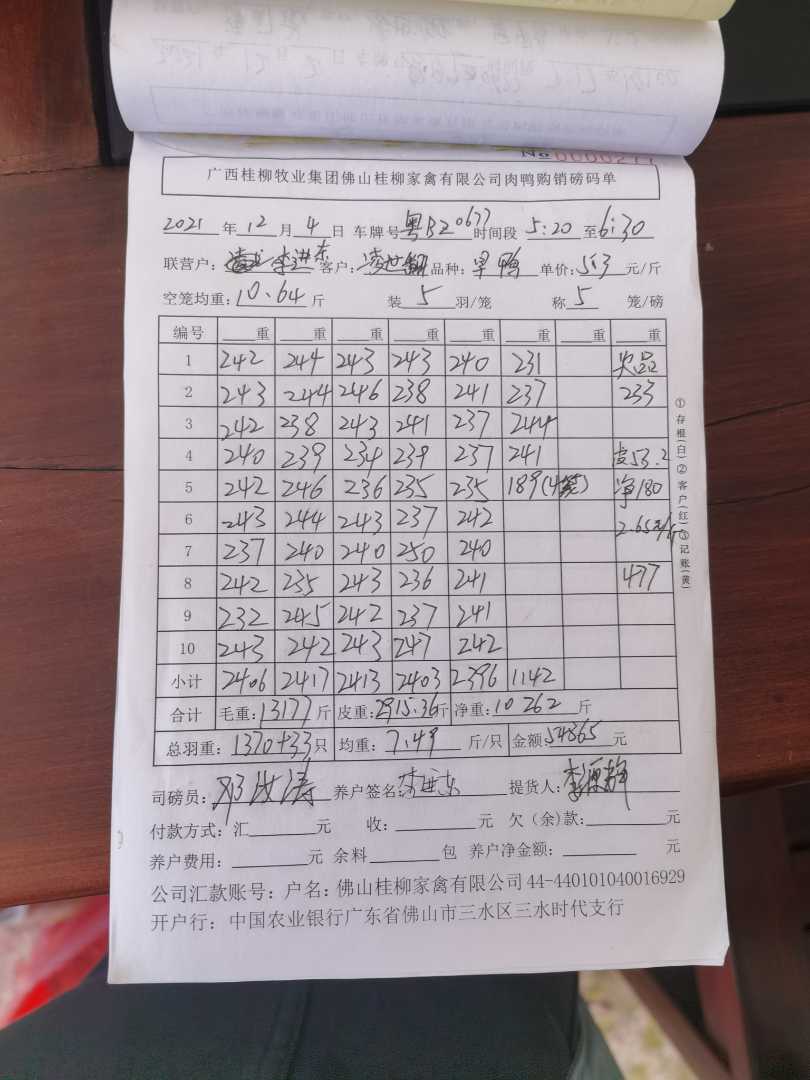 №0000277
广西桂柳牧业集团佛山桂柳家禽有限公司肉鸭购销磅码单
2021 年 12 月 4 日 车牌号 粤BZ0677 时间段 5:20 至 6:30
联营户: 李进东 客户: 凌世 品种: 旱鸭 单价: 5.3 元/斤
空笼均重: 10.64 斤 装 5 羽/笼 称 5 笼/磅
编号 重 重 重 重 重 重 重 重
1 242 244 243 243 240 231 次品
2 243 244 246 238 241 237 233
3 242 238 243 241 237 244
4 240 239 234 239 237 241 皮53.2
5 242 246 236 235 235 189(4笼) 净180
6 243 244 243 237 242 2.65元/斤
7 237 240 240 250 240
8 242 235 243 236 241 477
9 232 245 242 237 241
10 243 242 243 247 242
小计 2406 2417 2413 2403 2396 1142
合计 毛重: 13177 斤 皮重: 2915.36 斤 净重: 10262 斤
总羽重: 1370+33 只 均重: 7.49 斤/只 金额: 54865 元
司磅员: 邓汝涛 养户签名: 李进东 提货人: 李
付款方式: 汇 元 收: 元 欠(余)款: 元
养户费用: 元 余料 包 养户净金额: 元
公司汇款账号: 户名: 佛山桂柳家禽有限公司 44-440101040016929
开户行: 中国农业银行广东省佛山市三水区三水时代支行
①存根(白)②客户(红)③记账(黄)